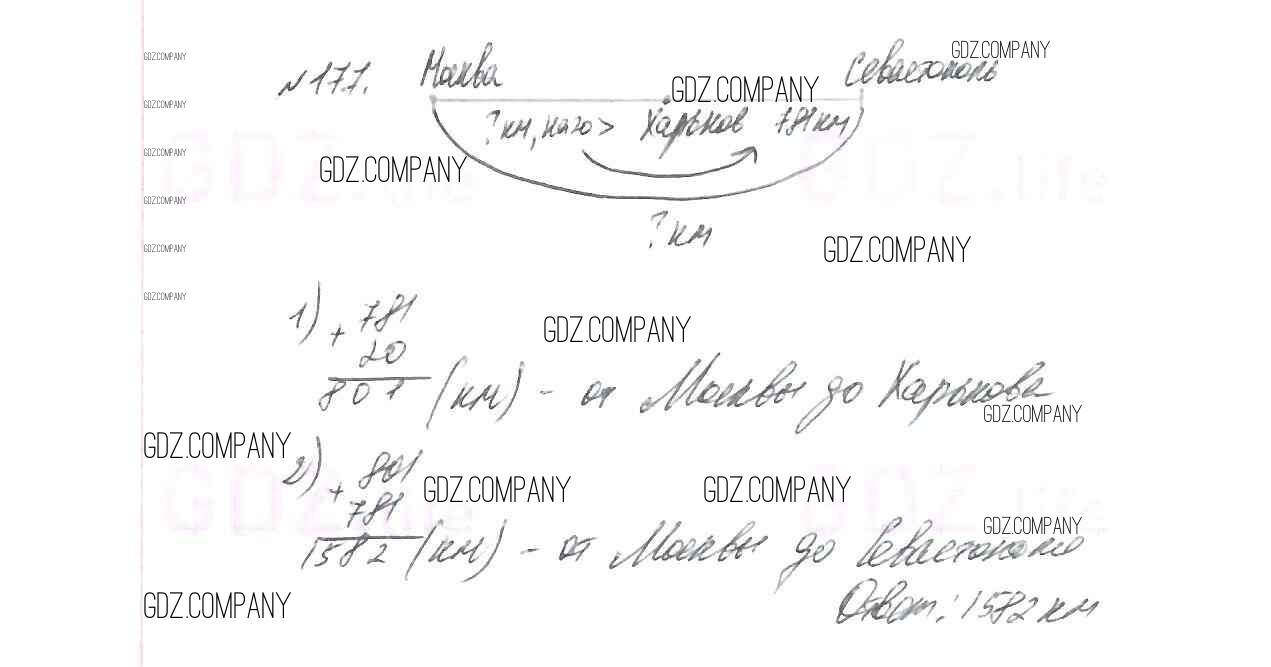 GDZ.COMPANY
№177. Москва GDZ.COMPANY Севастополь
GDZ.COMPANY
GDZ.COMPANY
? км, на 20 > Харьков 781 км
GDZ.COMPANY
GDZ.life GDZ.life
GDZ.COMPANY
GDZ.COMPANY
? км
GDZ.COMPANY
GDZ.COMPANY
GDZ.COMPANY
1) + 781
GDZ.COMPANY
20
801 (км) - от Москвы до Харькова
GDZ.COMPANY
GDZ.COMPANY
2) + 801
GDZ.COMPANY GDZ.COMPANY
781
GDZ.life GDZ.life
GDZ.COMPANY
1582 (км) - от Москвы до Севастополя
GDZ.COMPANY
Ответ: 1582 км